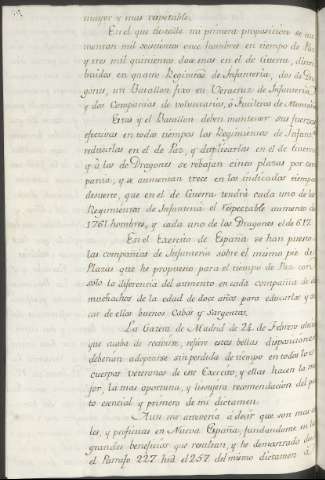 mayor y mas respetable.
En el que detalle mi primera proposicion se au
mentan mil doscientos once hombres en tiempo de Paz
y tres mil quinientos doce mas en el de Guerra, distri
buidos en quatro Regimtos. de Infanteria, dos de Dra
gones, un Batallon fixo en Veracruz de Infanteria,
y dos Compañias de voluntarios, ó fusileros de Montaña
Estas y el Batallon deben mantener sus fuerzas
efectivas en todos tiempos los Regimientos de Infant.
reducirlas en el de Paz, y duplicarlas en el de Guerra
y á las de Dragones se rebajan cinco plazas por com
pañia, y se aumentan trece en las indicadas tiempos
de suerte, que en el de Guerra tendrá cada uno de los
Regimientos de Infanteria el respectable aumento de
1761 hombres, y cada uno de los Dragones el de 617.
En el Exercito de España se han puesto
las compañias de Infanteria sobre el mismo pie de
Plazas que he propuesto para el tiempo de Paz con
solo la diferencia del aumento en cada compañia de
muchachos de la edad de doce años para educarlos y sa
car de ellos buenos Cabos y Sargentos.
La Gazeta de Madrid de 24 de Febrero
que acaba de recibirse, refiere estas bellas disposiciones
deberian adoptarse sin perdida de tiempo en todos los
cuerpos veteranos de este Exercito, y ellas hacen la me
jor, la mas oportuna, y lisongera recomendacion del pun
to esencial y primero de mi dictamen.
Aun me atreveria á decir que son mas úti
les, y precisas en Nueva España, fundandome en los
grandes beneficios que resultan, y he demostrado desde
el Parrafo 227 hta. el 257 del mismo dictamen á